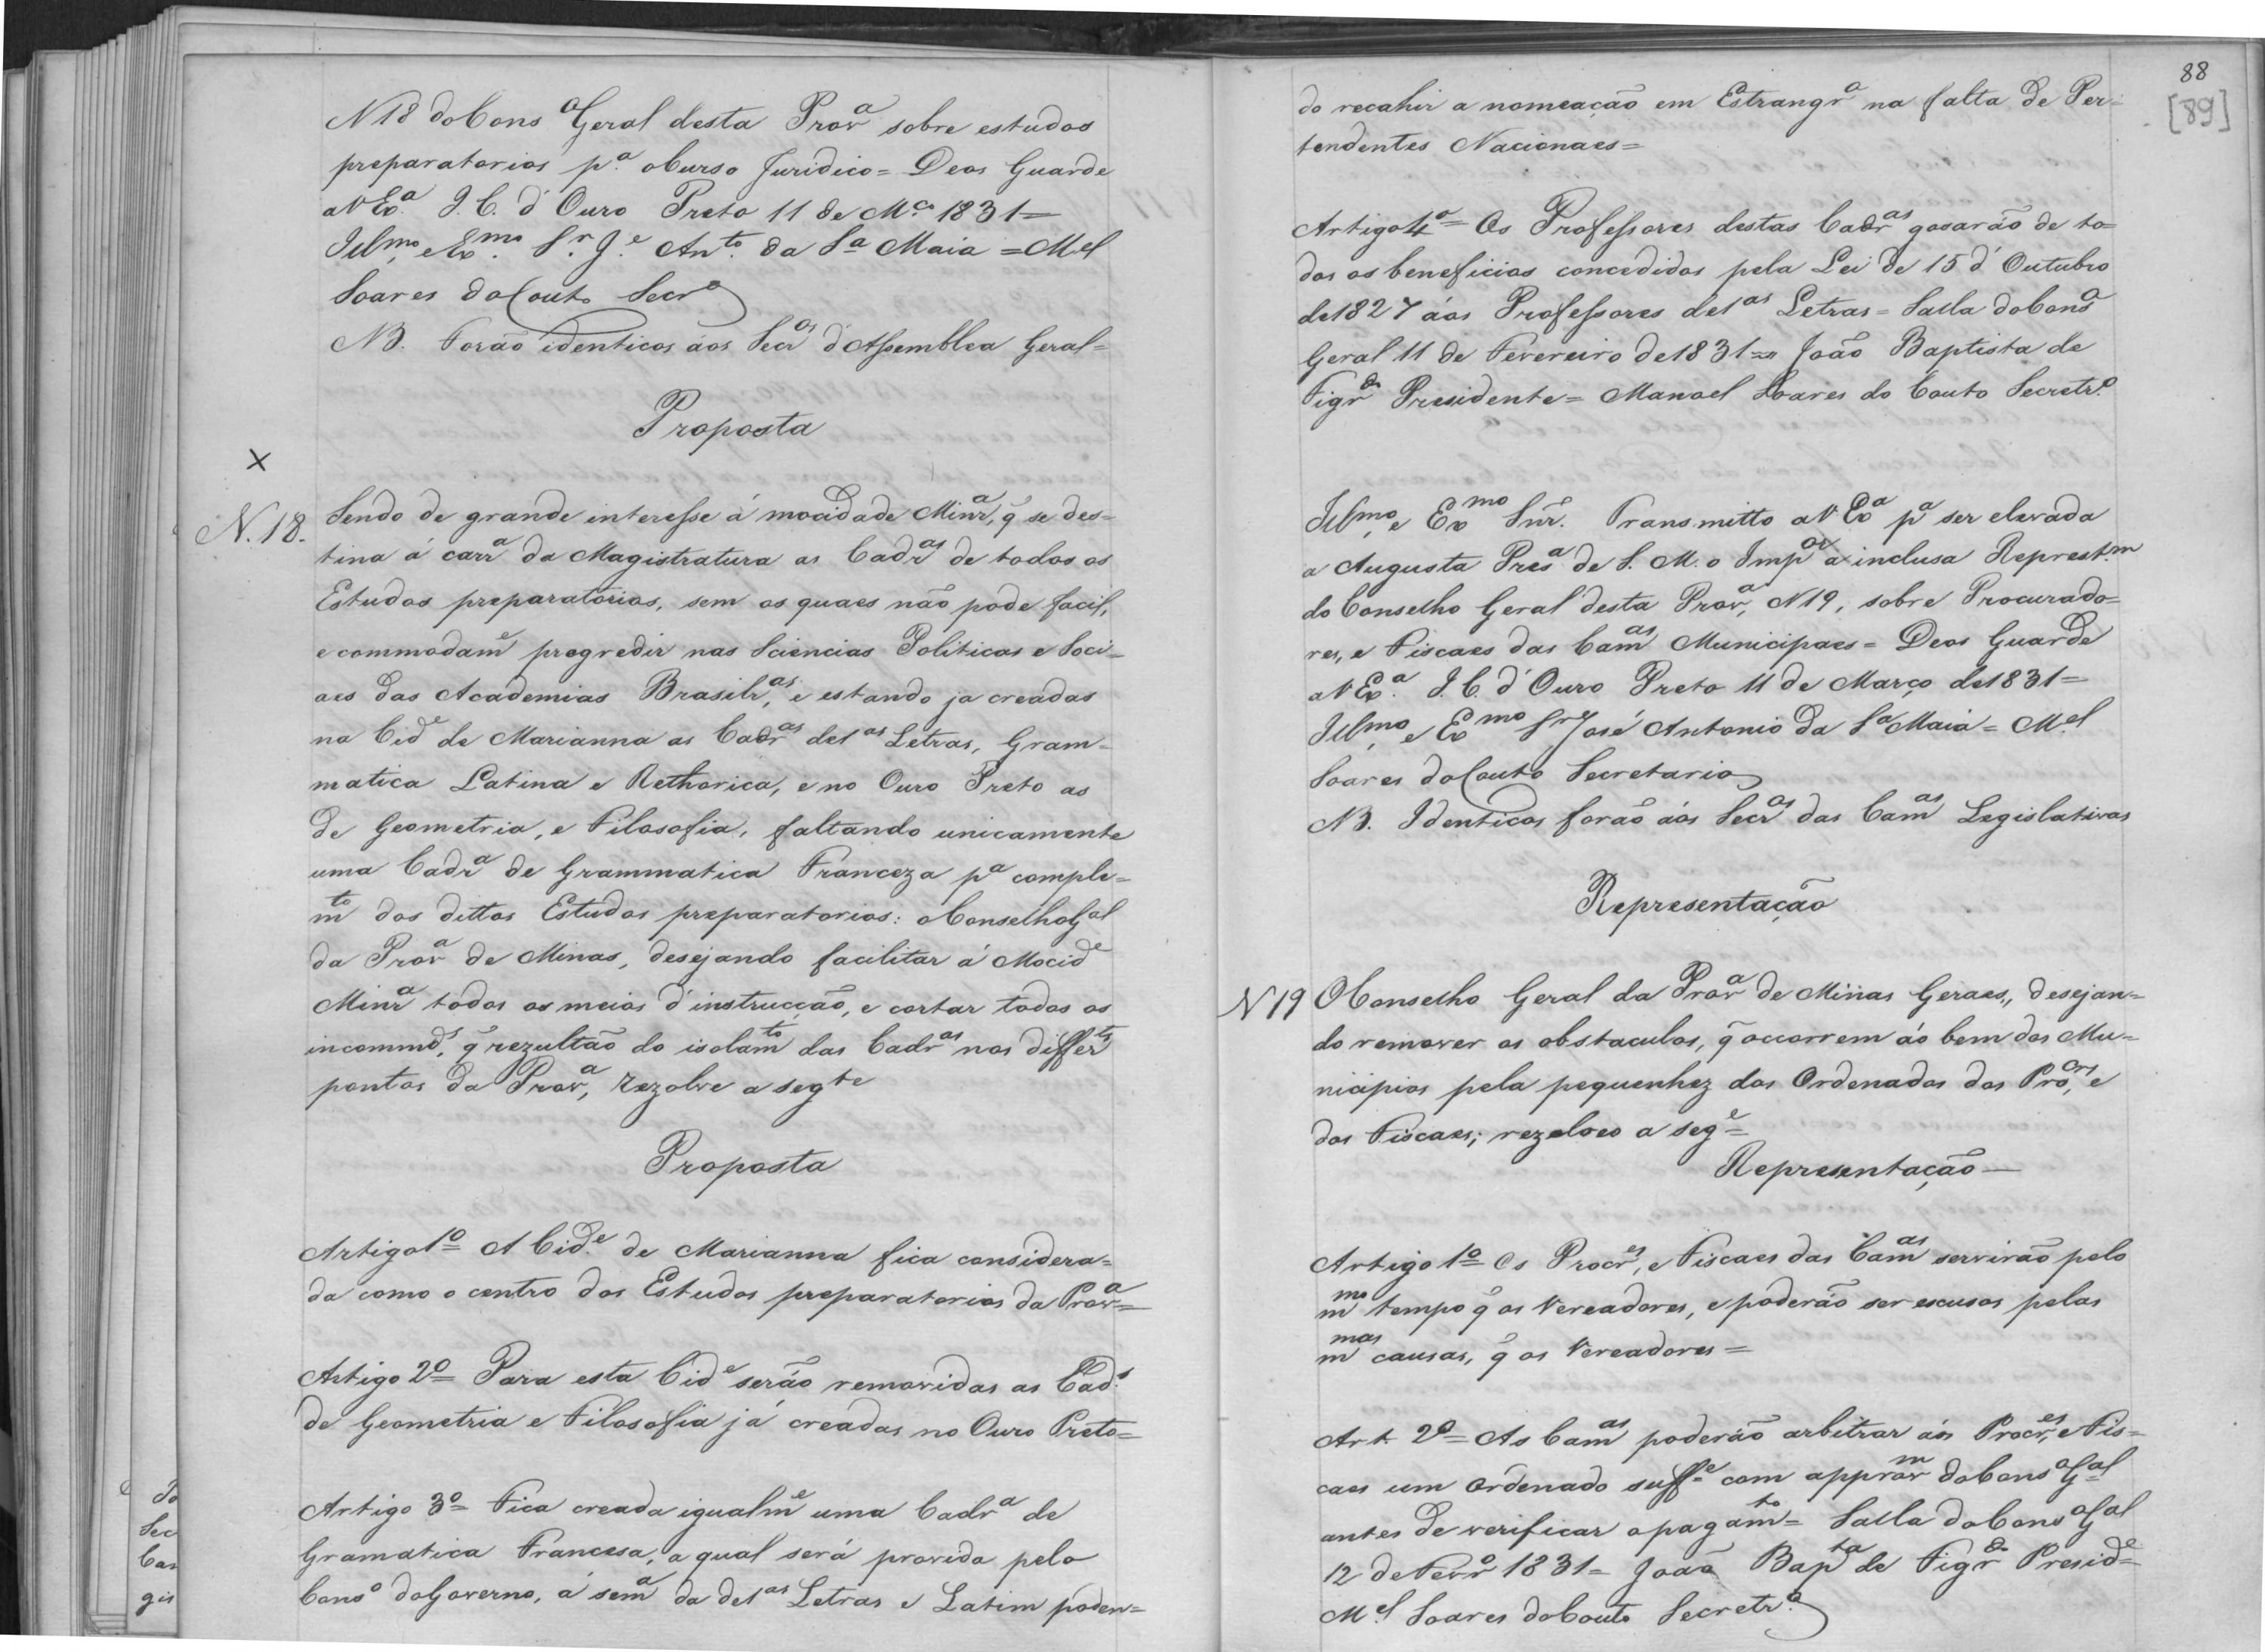 N 18 do Conso Geral desta Prova sobre estudos
preparatorios pa. o Curso Juridico = Deos Guarde
a V Exa. I. C. d'Ouro Preto 11 de Mço 1831 =
Illmo, e Exmo. Sr. Je. Anto. da Sa Maia = Mel
Soares do Couto Secro
NB. Forão identicos aos Secros d'Assemblea Geral =
Proposta
X
N. 18.
Sendo de grande interesse á mocidade Minra, q̃ se des-
tina á carra da Magistratura as Cadras de todos os
Estudos preparatorios, sem os quaes não pode facil,
e commodame progredir nas Sciencias Politicas e Soci-
aes das Academias Brasilras, e estando ja creadas
na Cide de Marianna as Cadras de 1as Letras, Gram-
matica Latina e Rethorica, e no Ouro Preto as
de Geometria, e Filosofia, faltando unicamente
uma Cadra de Grammatica Franceza pa comple-
mto dos dittos Estudos preparatorios: o Conselho Gal
da Prova de Minas, desejando facilitar á Mocide
Minra todos os meios d'instrucção, e cortar todos os
incommds, q̃ rezultão do isolamto das Cadras nos differts
pontos da Prova, rezolve a segte
Proposta
Artigo 1o = A Cide. de Marianna fica considera-
da como o centro dos Estudos preparatorios da Prova =
Artigo 2o = Para esta Cide serão removidas as Cads.
de Geometria e Filosofia já creadas no Ouro Preto =
Artigo 3o = Fica creada igualme uma Cadra de
Gramatica Francesa, a qual será provida pelo
Conso do Governo, á sema da de 1as Letras e Latim poden-
88
[89]
do recahir a nomeação em Estrangro na falta de Per-
tendentes Nacionaes =
Artigo 4o = Os Professores destas Cadras gosarão de to-
dos os beneficios concedidos pela Lei de 15 d'Outubro
de 1827 áos Professores de 1as Letras = Salla do Conso
Geral 11 de Fevereiro de 1831 = João Baptista de
Figrdo Presidente = Manoel Soares do Couto Secretro.
Illmo, e Exmo Snr. Transmitto a V Exa pa ser elevada
a Augusta Presa de S. M. o Impor a inclusa Represtm
do Conselho Geral desta Prova, N 19, sobre Procurado-
res, e Fiscaes das Camas Municipaes = Deos Guarde
a V Exa. I. C. d'Ouro Preto 11 de Março de 1831 =
Illmo, e Exmo Sr José Antonio da Sa Maia = Mel
Soares do Couto Secretario
NB. Identicos forão áos Secros das Camas Legislativas
Representação
N 19 O Conselho Geral da Prova de Minas Geraes, desejan-
do remover os obstaculos, q̃ occorrem áo bem dos Mu-
nicipios pela pequenhez dos Ordenados dos Proors, e
dos Fiscaes; rezolveo a sege =
Representação —
Artigo 1o = Os Procres, e Fiscaes das Camas servirão pelo
mmo tempo q̃ os Vereadores, e poderão ser escusos pelas
mmas causas, q̃ os Vereadores =
Art. 2o = As Camas poderão arbitrar áos Procres, e Fis-
caes um Ordenado suffe com approvm do Conso Gal
antes de verificar o pagamto = Salla do Conso Gal
12 de Fevro 1831 = João Bapta de Figrdo Preside =
Mel Soares do Couto Secretro.